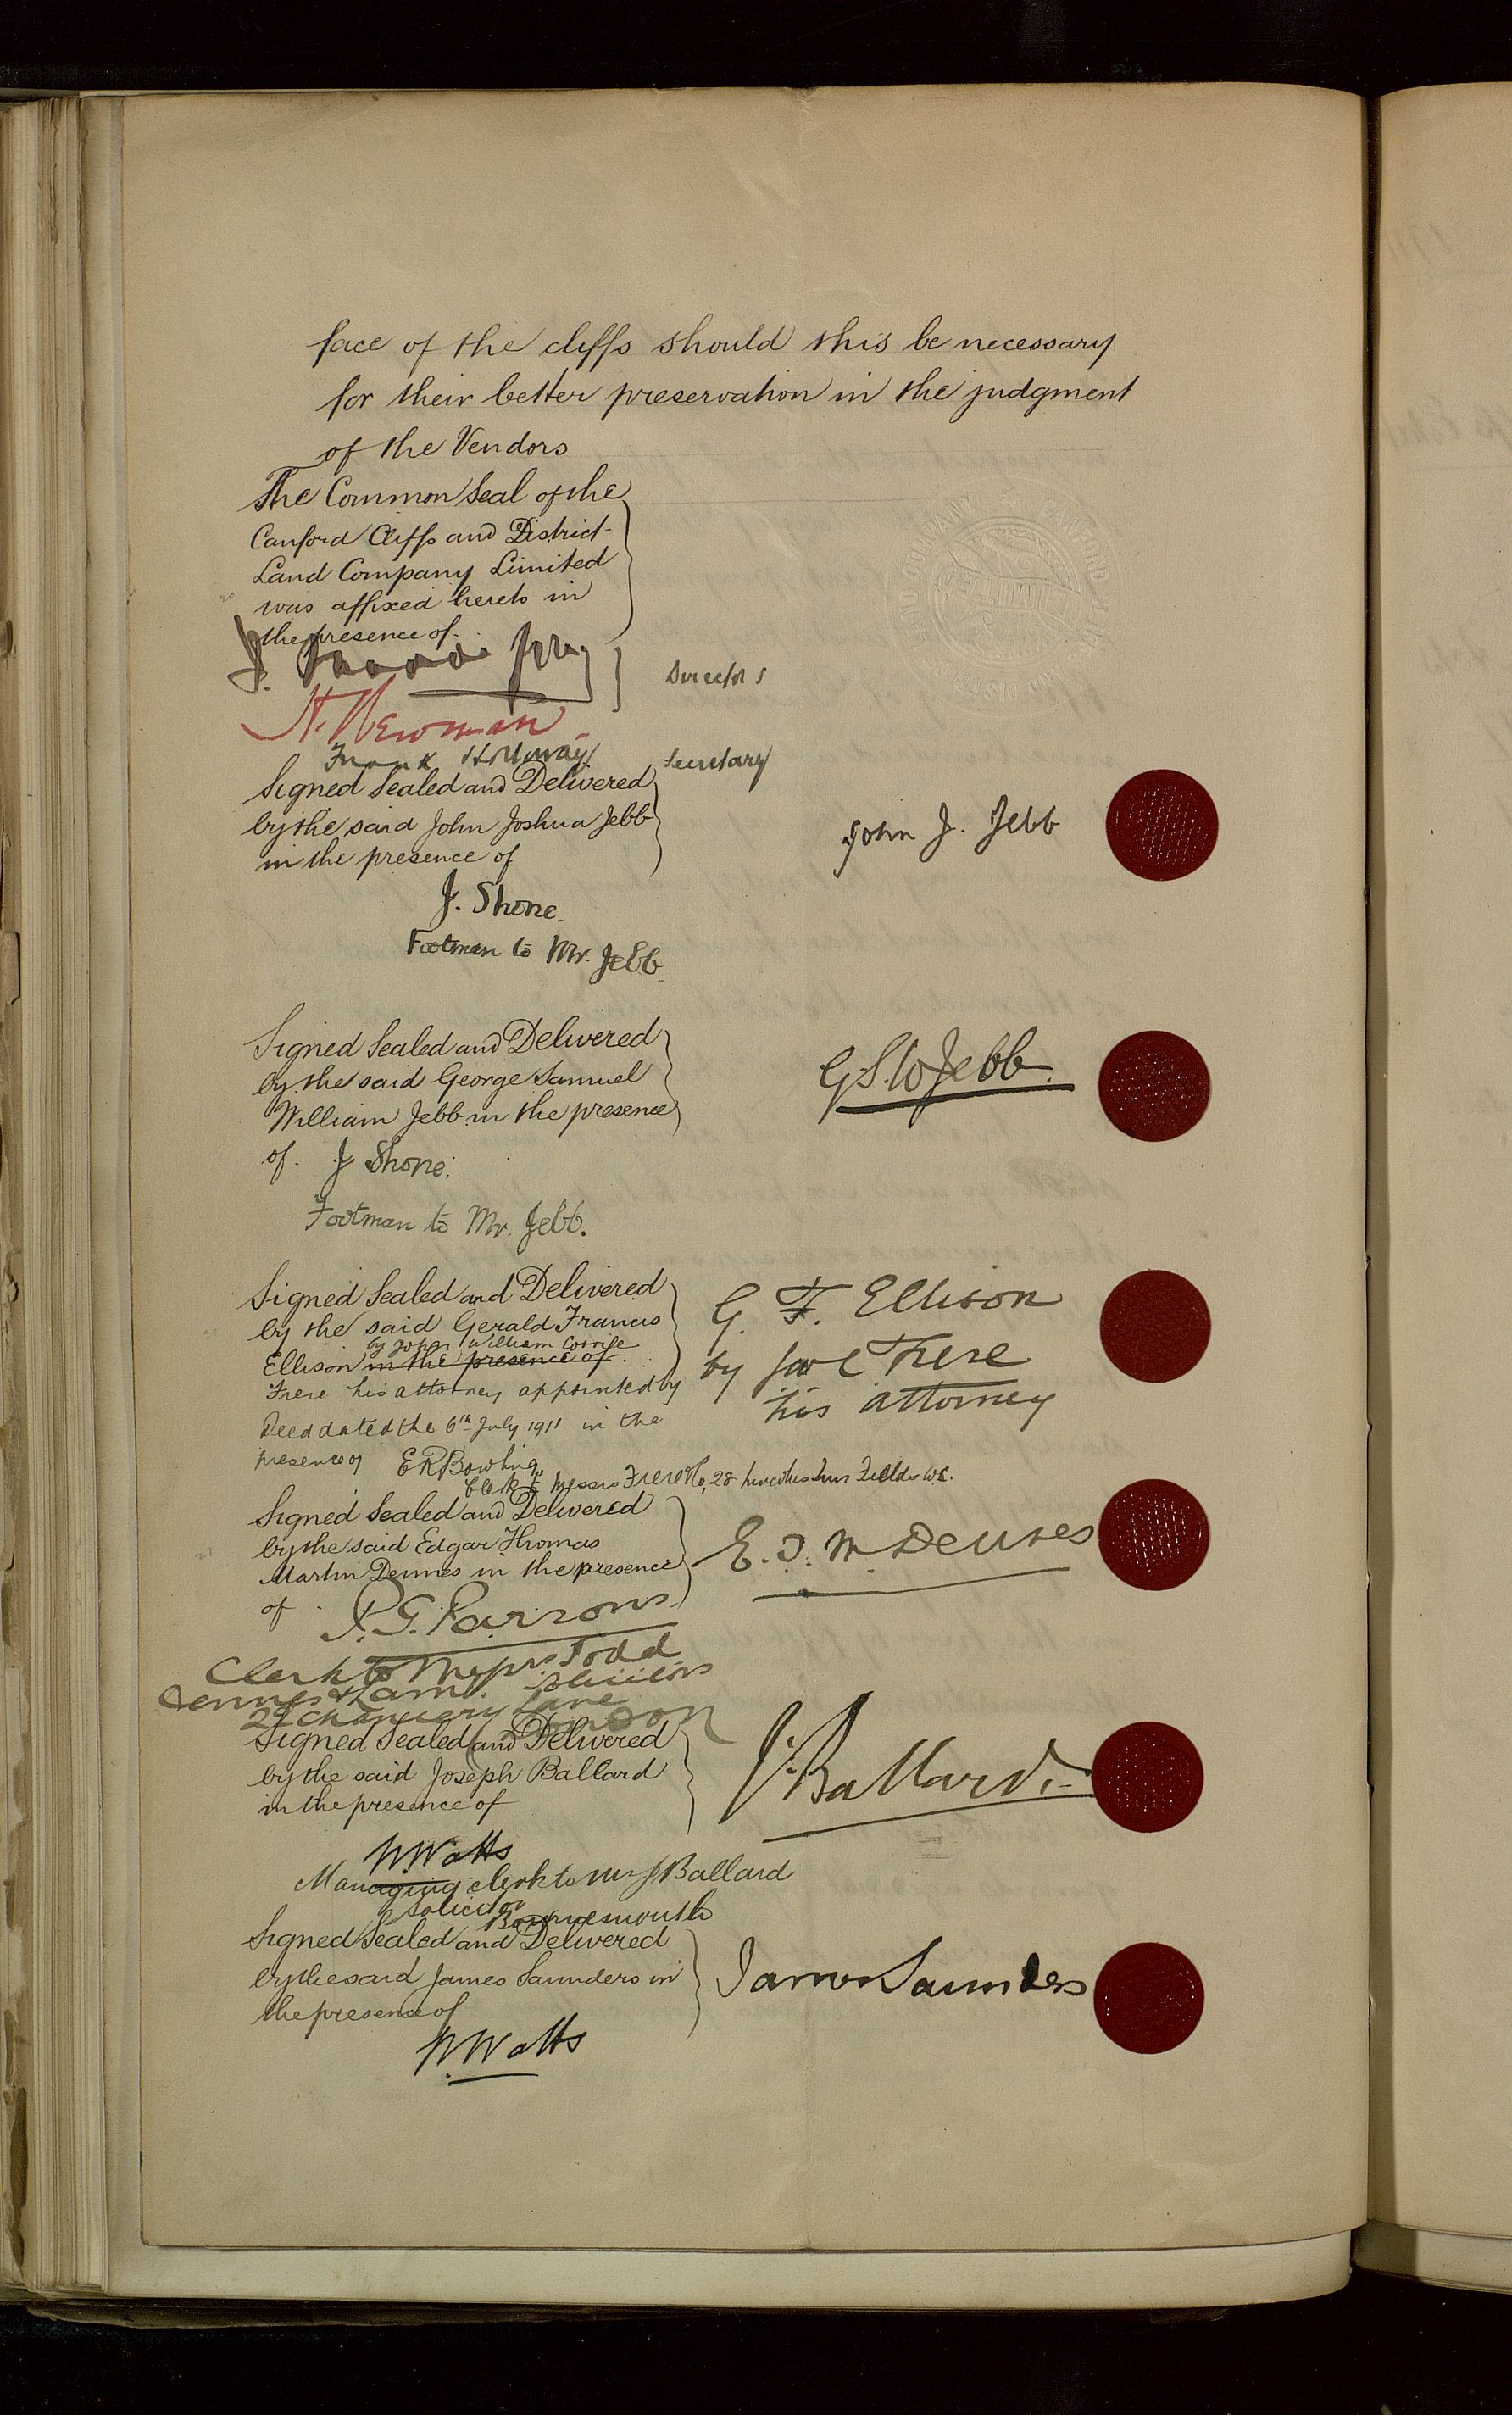 face of the cliffs should this be necessary
for their better preservation in the judgment
of the Vendors
The Common Seal of the
Canford Cliffs and District
Land Company Limited
was affixed hereto in
the presence of
J.
Directors
N. Newman
Frank Holloway
Secretary
Signed Sealed and Delivered
by the said John Joshua Jebb
in the presence of
John J. Jebb
J. Shone.
Footman to Mr. Jebb.
Signed Sealed and Delivered
by the said George Samuel
William Jebb in the presence
of J Shone.
G S. W Jebb.
Footman to Mr. Jebb.
Signed Sealed and Delivered
by the said Gerald Francis
by John William Corrie
Ellison in the presence of
Frere his attorney appointed by
Deed dated the 6th July 1911 in the
presence of E R Bowling
Clerk to Messrs Frere & Co, 28 Lincolns Inn Fields W.C.
G. F. Ellison
by J W C Frere
his attorney
Signed Sealed and Delivered
by the said Edgar Thomas
Martin Dennes in the presence
of P. G. Parsons.
E. T. M Dennes
Clerk to Messrs Todd
Dennes & Lamb. Solicitors
22 Chancery Lane
London
Signed Sealed and Delivered
by the said Joseph Ballard
in the presence of
J. Ballard.
W Watts
Managing clerk to Mr J Ballard
Solicitor
Bournemouth
Signed Sealed and Delivered
by the said James Saunders in
the presence of
James Saunders
W Watts